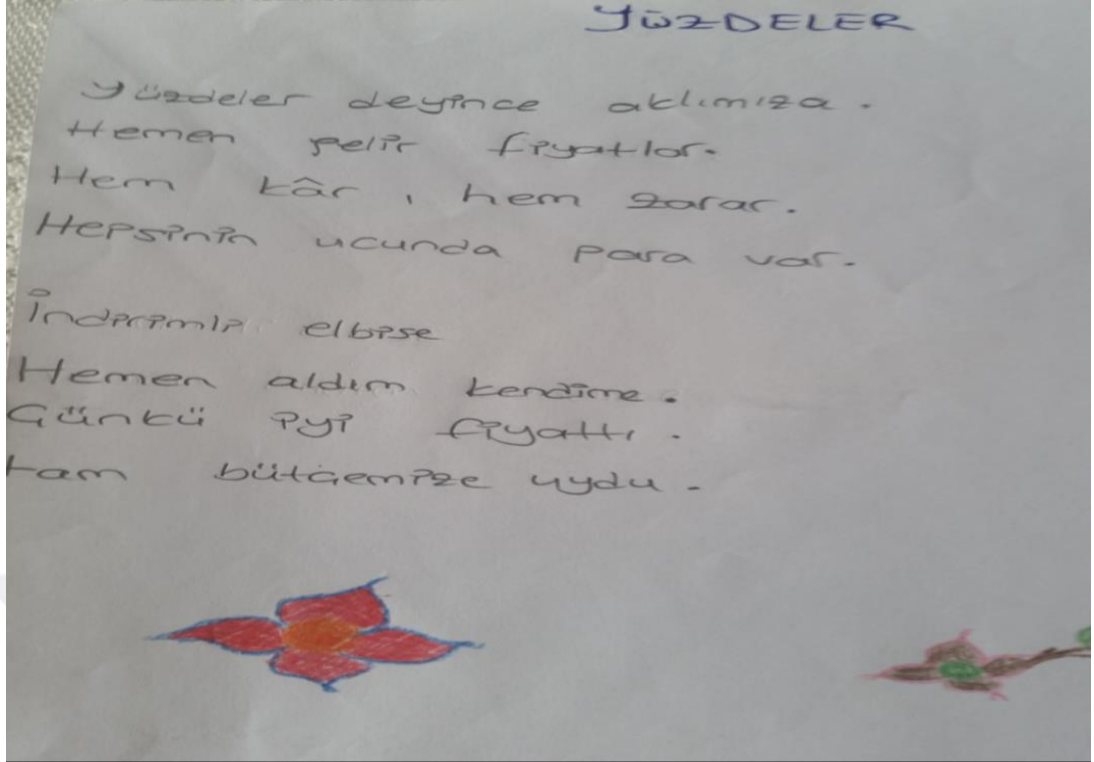 YÜZDELER
Yüzdeler deyince aklımıza.
Hemen gelir fiyatlar.
Hem kâr, hem zarar.
Hepsinin ucunda para var.
İndirimli elbise
Hemen aldım kendime.
Günkü iyi fiyattı.
tam bütçemize uydu.